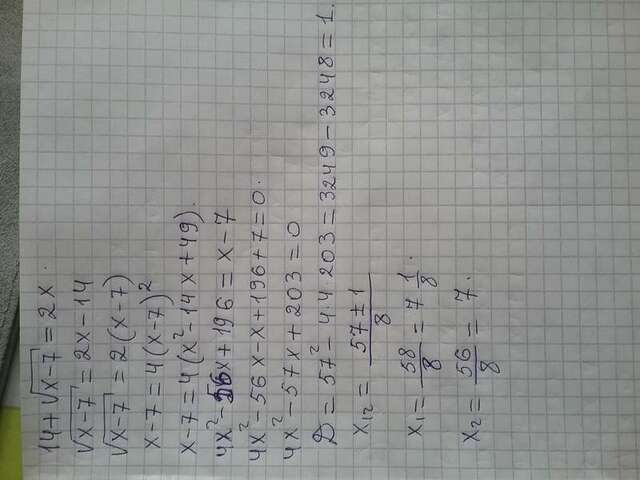 14+√(x-7) = 2x.
√(x-7) = 2x-14
√(x-7) = 2(x-7)
x-7=4(x-7)²
x-7=4(x²-14x+49).
4x²-56x+196=x-7
4x²-56x-x+196+7=0.
4x²-57x+203=0
D=57²-4·4·203=3249-3248=1.
x₁₂= (57±1)/8
x₁= 58/8 = 7 1/8.
x₂= 56/8 = 7.